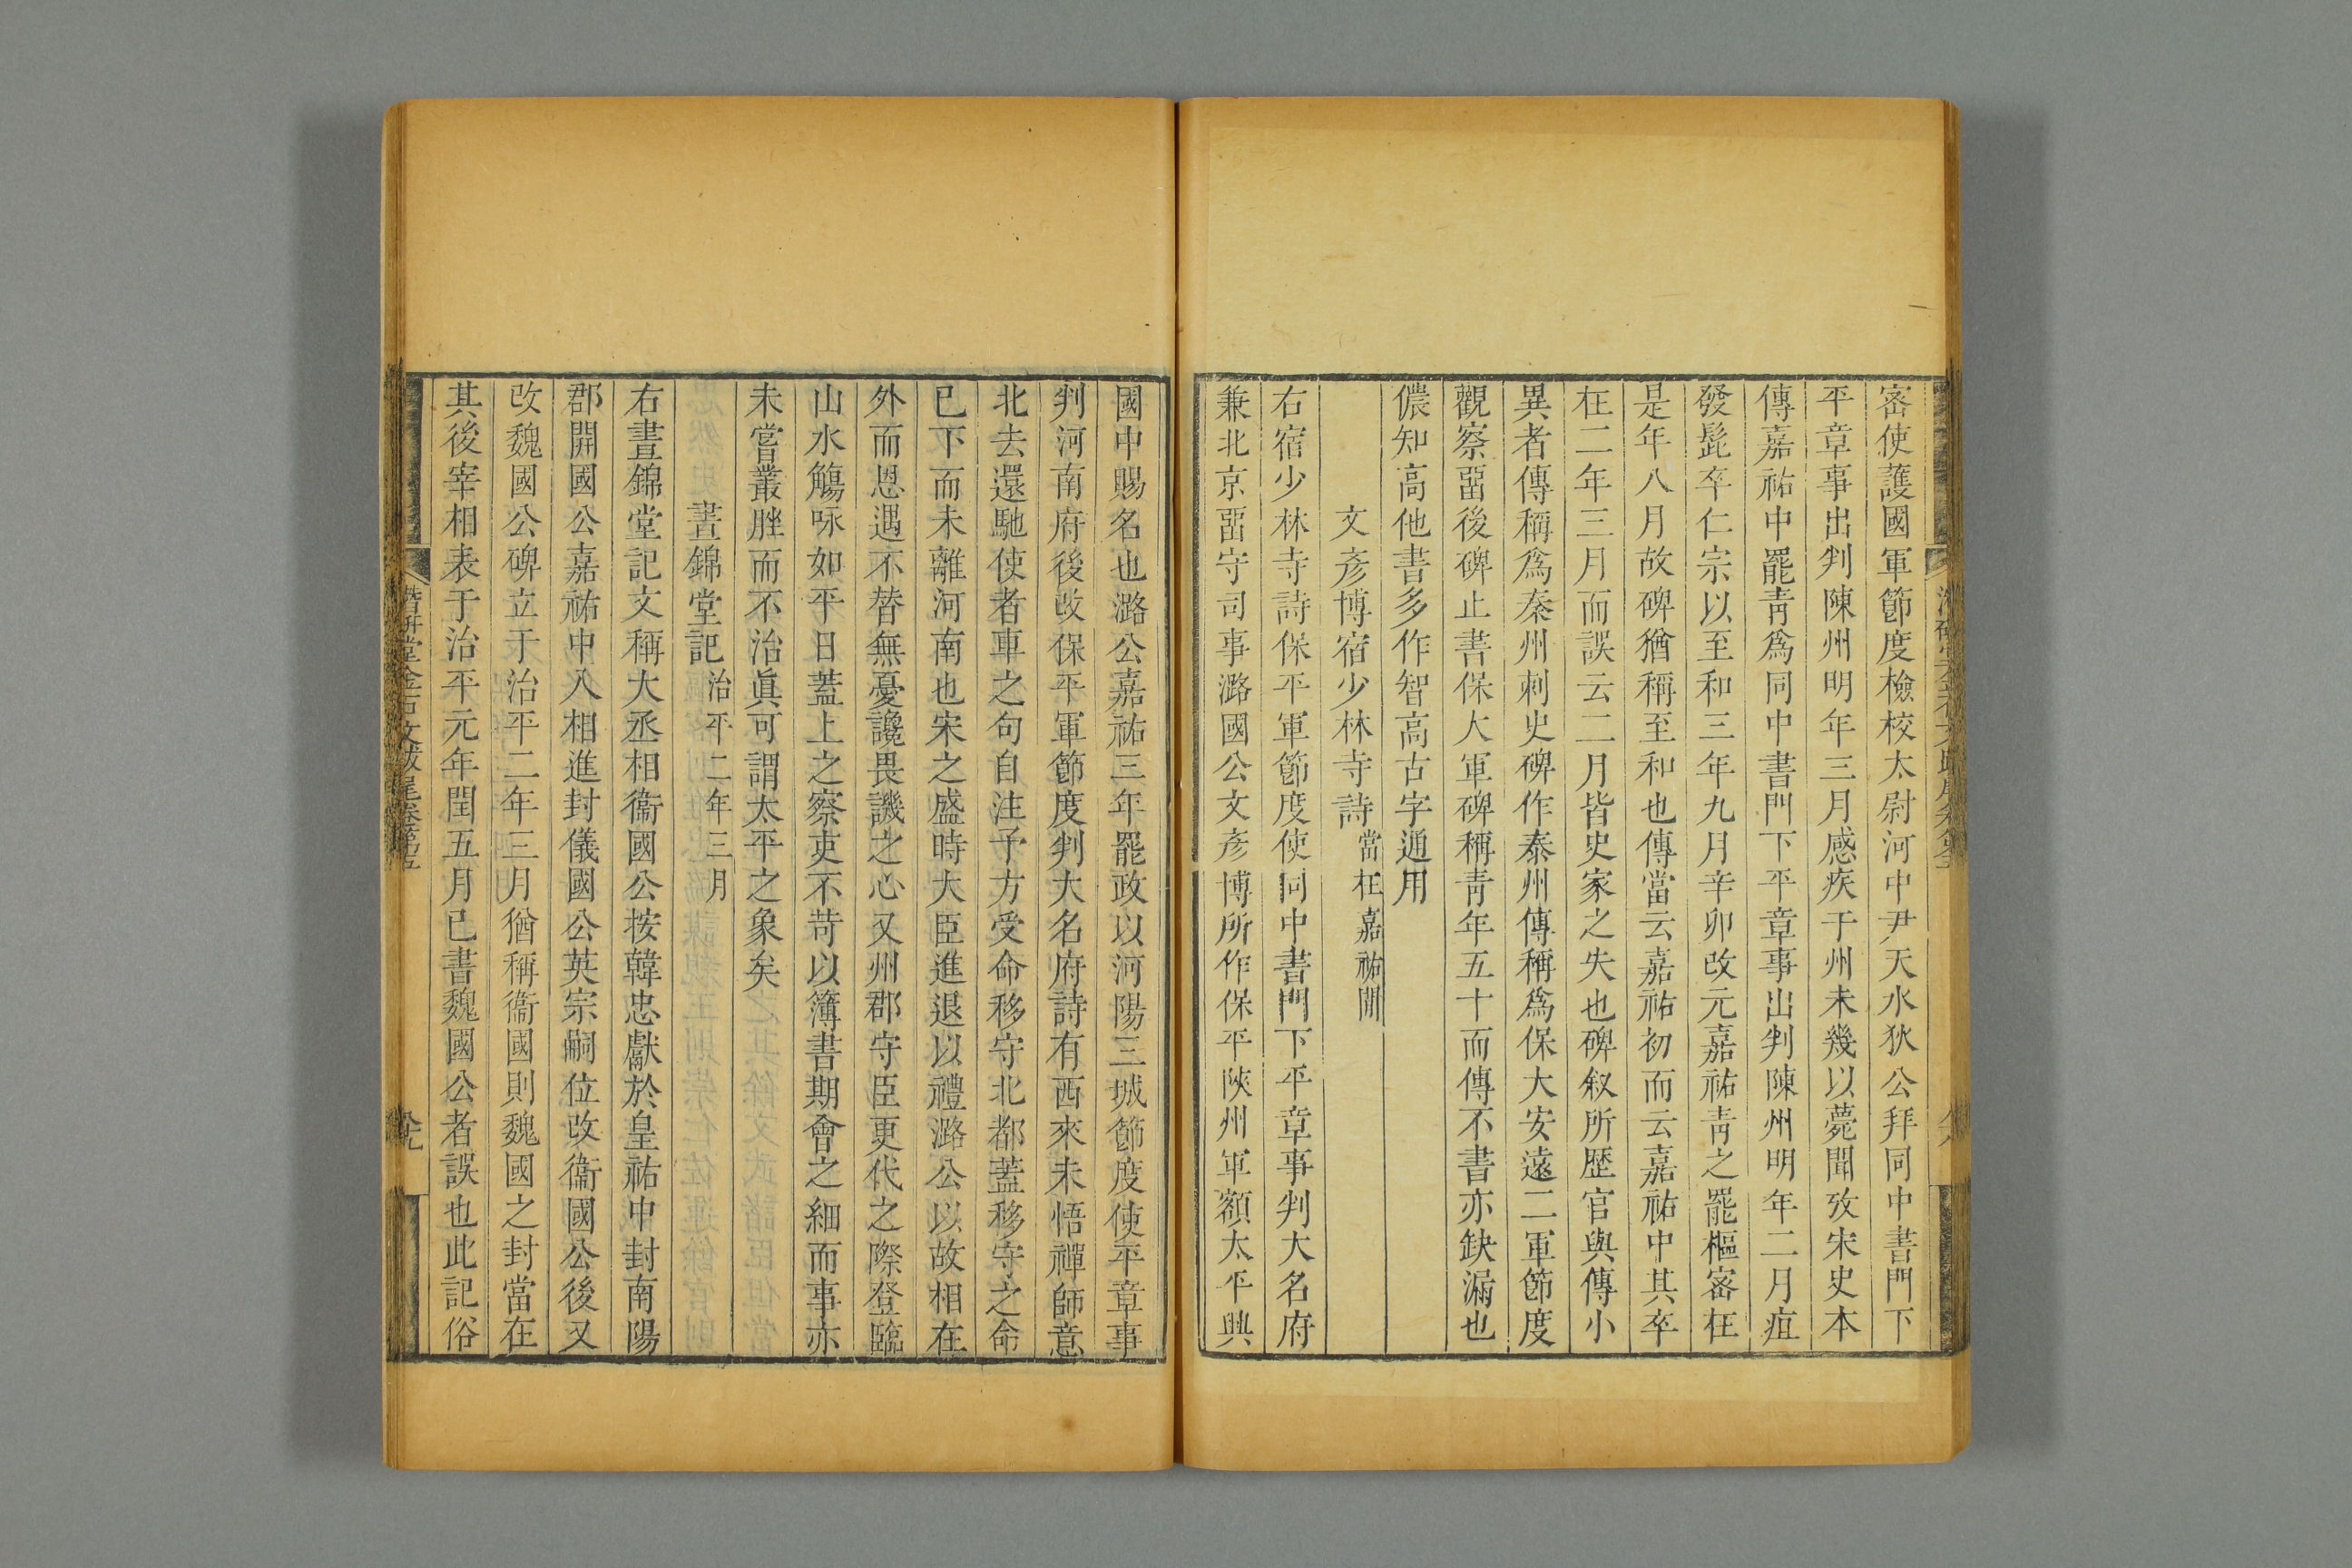 密使護國軍節度檢校太尉河中尹天水狄公拜同中書門下
平章事出判陳州明年三月感疾于州未幾以薨聞攷宋史本
傳嘉祐中罷青爲同中書門下平章事出判陳州明年二月疽
發髭卒仁宗以至和三年九月辛卯改元嘉祐青之罷樞密在
是年八月故碑猶稱至和也傳當云嘉祐初而云嘉祐中其卒
在二年三月而誤云二月皆史家之失也碑敘所歷官與傳小
異者傳稱爲秦州刺史碑作泰州傳稱爲保大安遠二軍節度
觀察畱後碑止書保大軍碑稱青年五十而傳不書亦缺漏也
儂知高他書多作智高古字通用
文彥博宿少林寺詩當在嘉祐閒
右宿少林寺詩保平軍節度使同中書門下平章事判大名府
兼北京畱守司事潞國公文彥博所作保平陝州軍額太平興
國中賜名也潞公嘉祐三年罷政以河陽三城節度使平章事
判河南府後改保平軍節度判大名府詩有西來未悟禪師意
北去還馳使者車之句自注予方受命移守北都蓋移守之命
已下而未離河南也宋之盛時大臣進退以禮潞公以故相在
外而恩遇不替無憂讒畏譏之心又州郡守臣更代之際登臨
山水觴咏如平日蓋上之察吏不苛以簿書期會之細而事亦
未嘗叢脞而不治眞可謂太平之象矣
晝錦堂記治平二年三月
右晝錦堂記文稱大丞相衞國公按韓忠獻於皇祐中封南陽
郡開國公嘉祐中入相進封儀國公英宗嗣位改衞國公後又
改魏國公碑立于治平二年三月猶稱衞國則魏國之封當在
其後宰相表于治平元年閏五月已書魏國公者誤也此記俗
潛研堂金石文跋尾卷第五